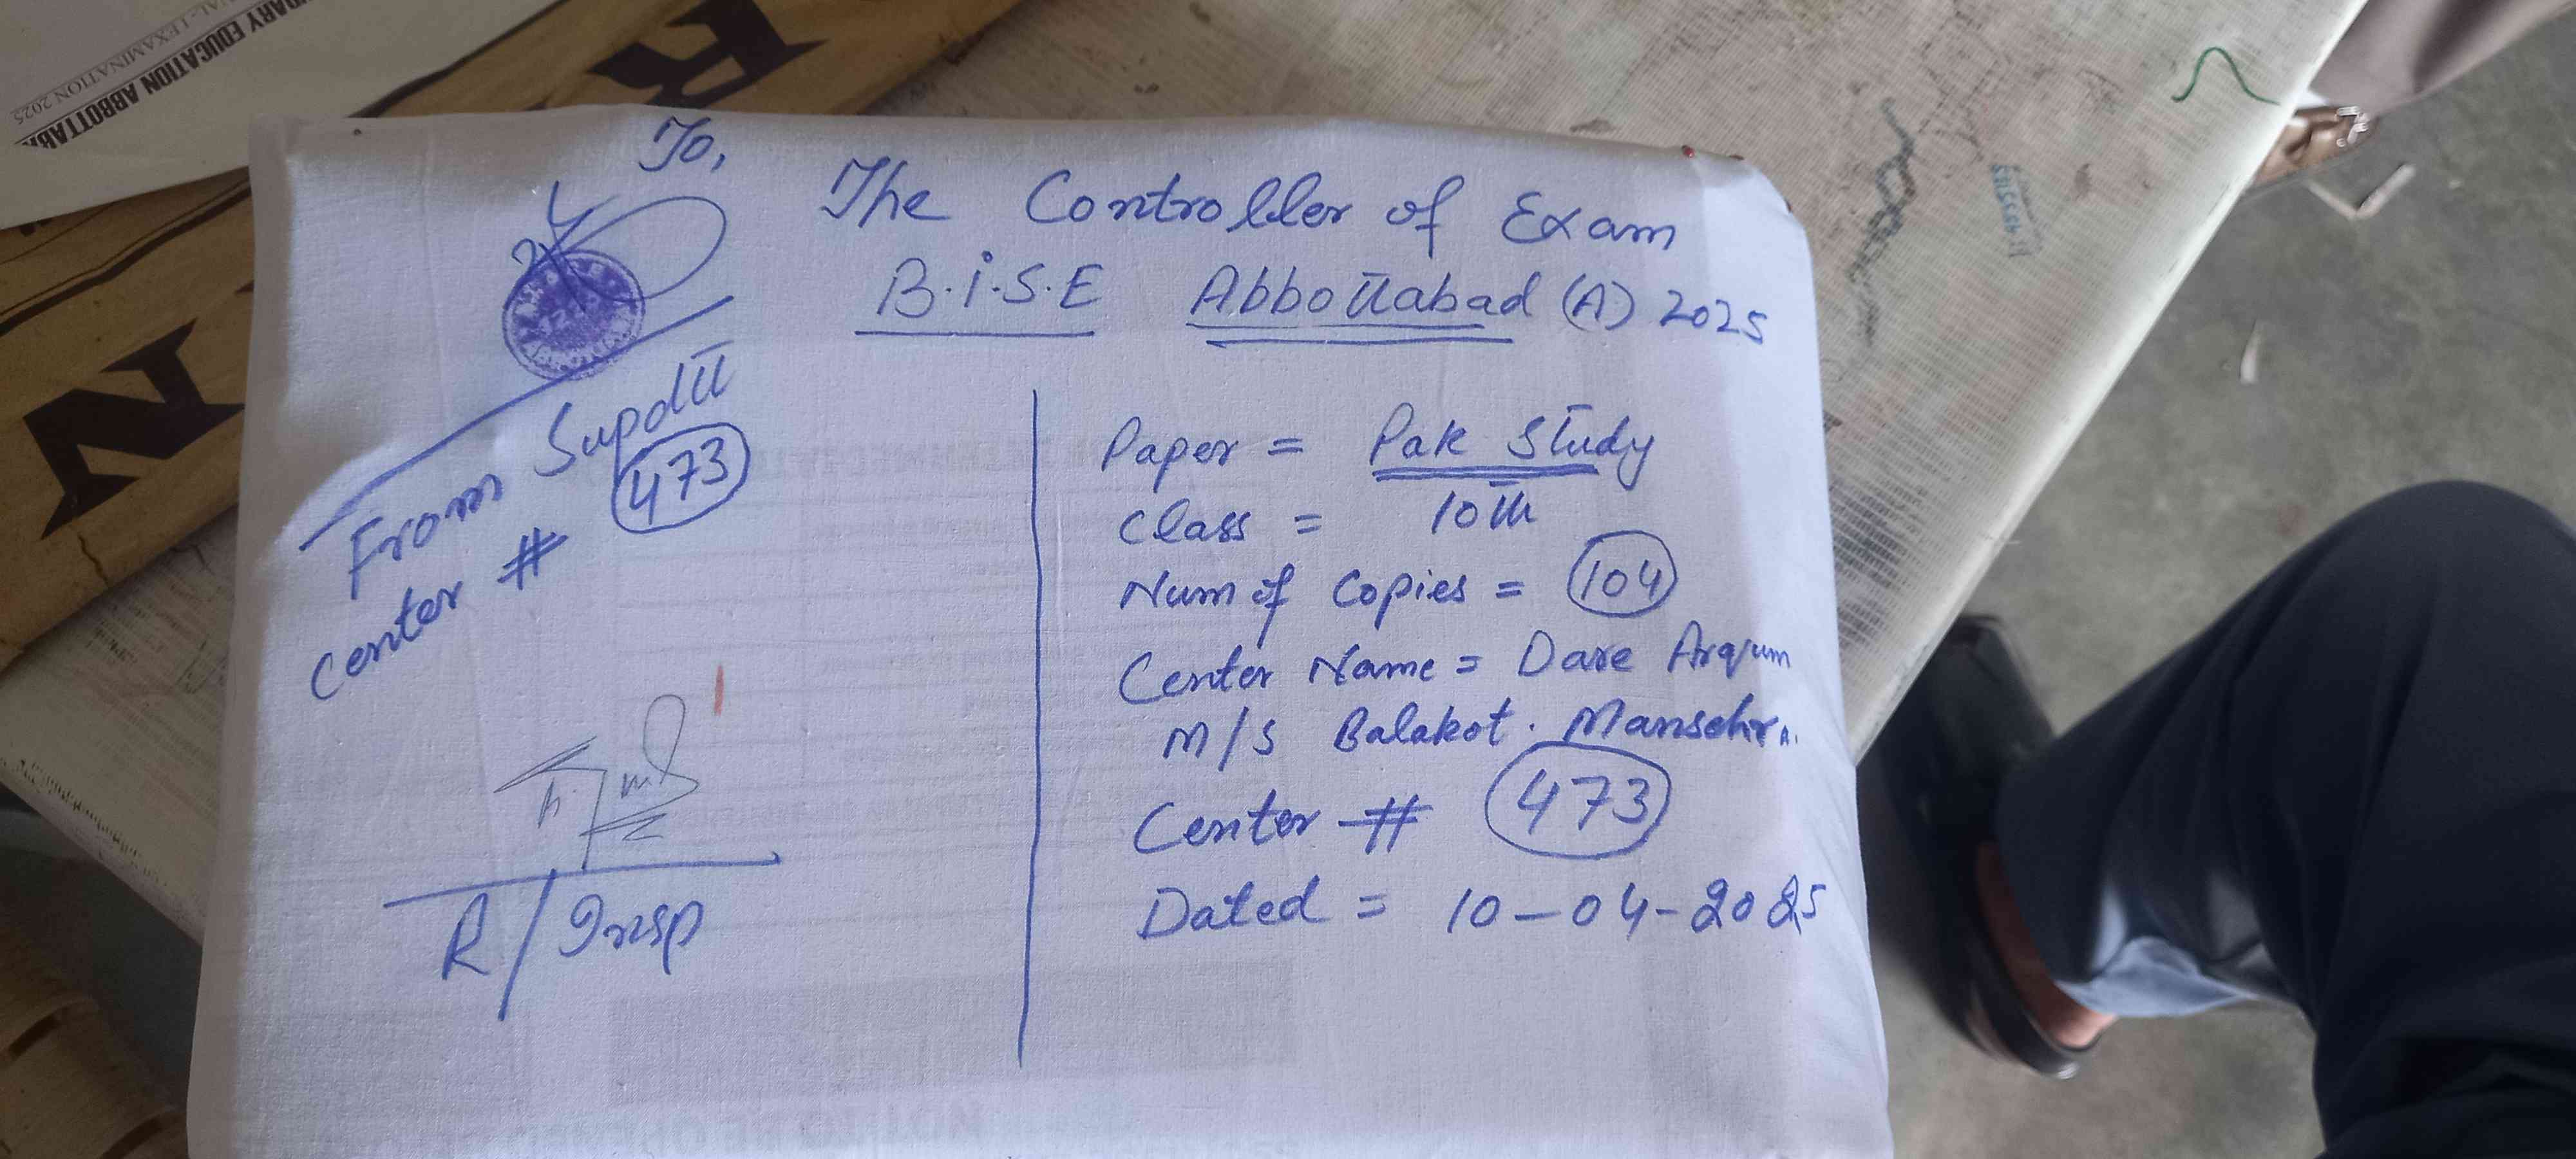 To,
The Controller of Exam
B.I.S.E Abbottabad (A) 2025
From Supdtt
Center # 473
R/Insp
Paper = Pak Study
Class = 10th
Num of Copies = 104
Center Name = Dare Arqum
M/S Balakot. Mansehra.
Center # 473
Dated = 10-04-2025
EDUCATION ABBOTTABA
EXAMINATION 2025
R
N